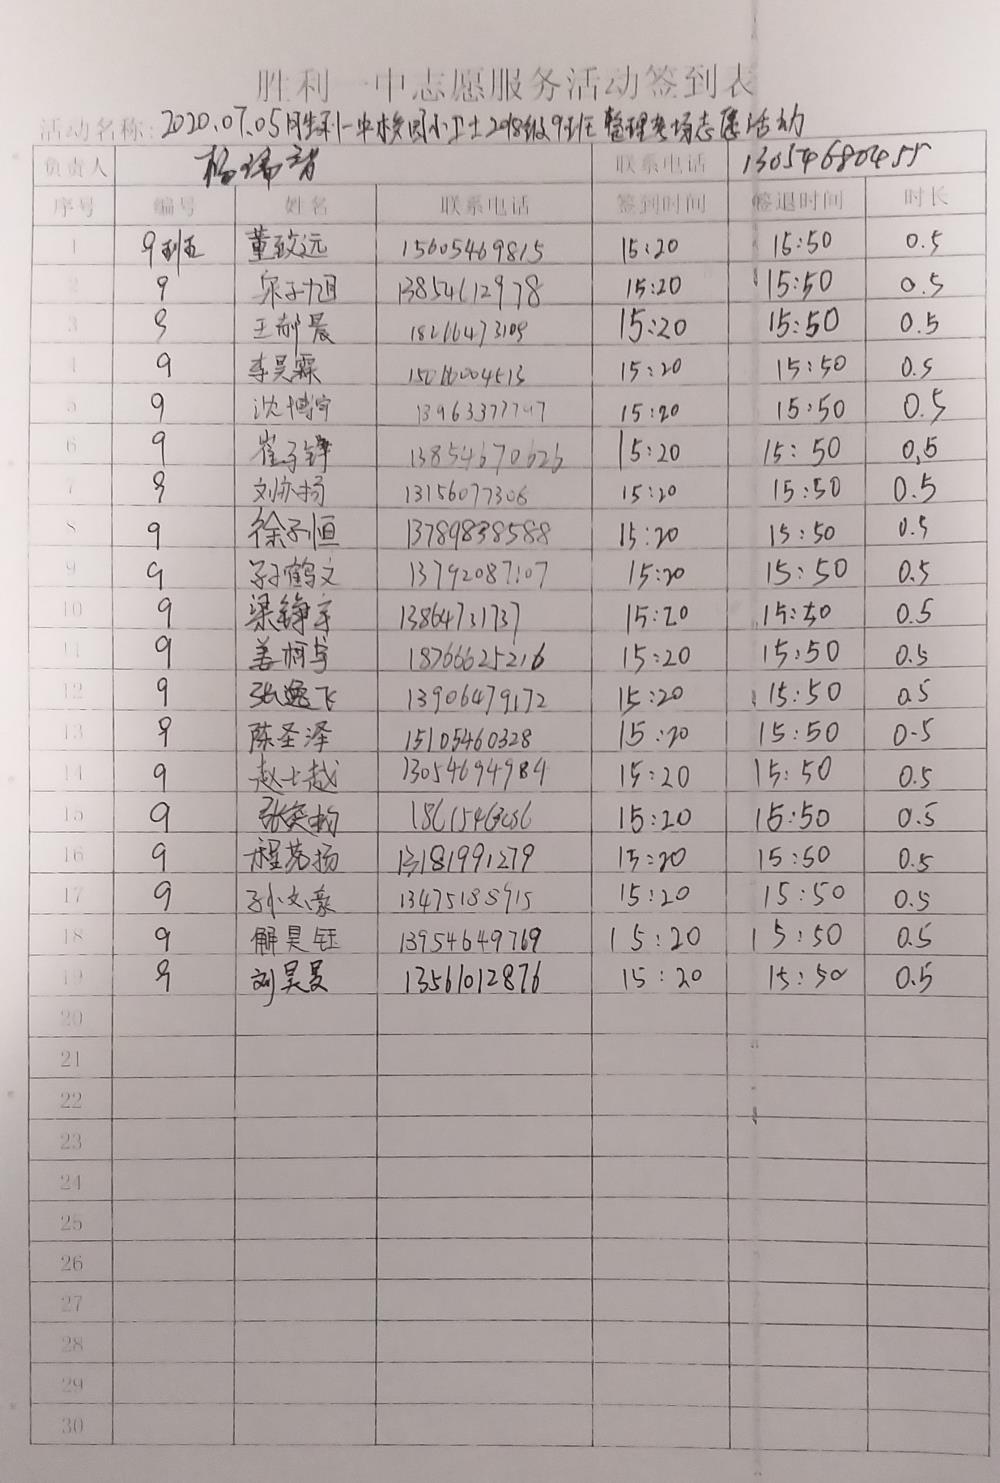 胜利一中志愿服务活动签到表
活动名称: 2020.07.05胜利一中校园小卫士2018级9班整理考场志愿活动
负责人 杨瑞智 联系电话 13054680455
序号 编号 姓名 联系电话 签到时间 签退时间 时长
1 9 董致远 15605469815 15:20 15:50 0.5
2 9 宋子旭 13854612978 15:20 15:50 0.5
3 9 王郝晨 15:20 15:50 0.5
4 9 李昊霖 15:20 15:50 0.5
5 9 沈博宇 15:20 15:50 0.5
6 9 崔子铎 13854670626 15:20 15:50 0.5
7 9 刘亦扬 13156077306 15:20 15:50 0.5
8 9 徐子恒 13789838588 15:20 15:50 0.5
9 9 孙鹤文 13792087107 15:20 15:50 0.5
10 9 梁铮宇 13864731737 15:20 15:50 0.5
11 9 姜柯宇 18766625216 15:20 15:50 0.5
12 9 张逸飞 13906479172 15:20 15:50 0.5
13 9 陈圣泽 15105460328 15:20 15:50 0.5
14 9 赵士越 13054694984 15:20 15:50 0.5
15 9 15:20 15:50 0.5
16 9 程芫扬 13181991279 15:20 15:50 0.5
17 9 孙文豪 13475188915 15:20 15:50 0.5
18 9 解昊钰 13954649769 15:20 15:50 0.5
19 9 刘昊旻 13561012876 15:20 15:50 0.5
20
21
22
23
24
25
26
27
28
29
30